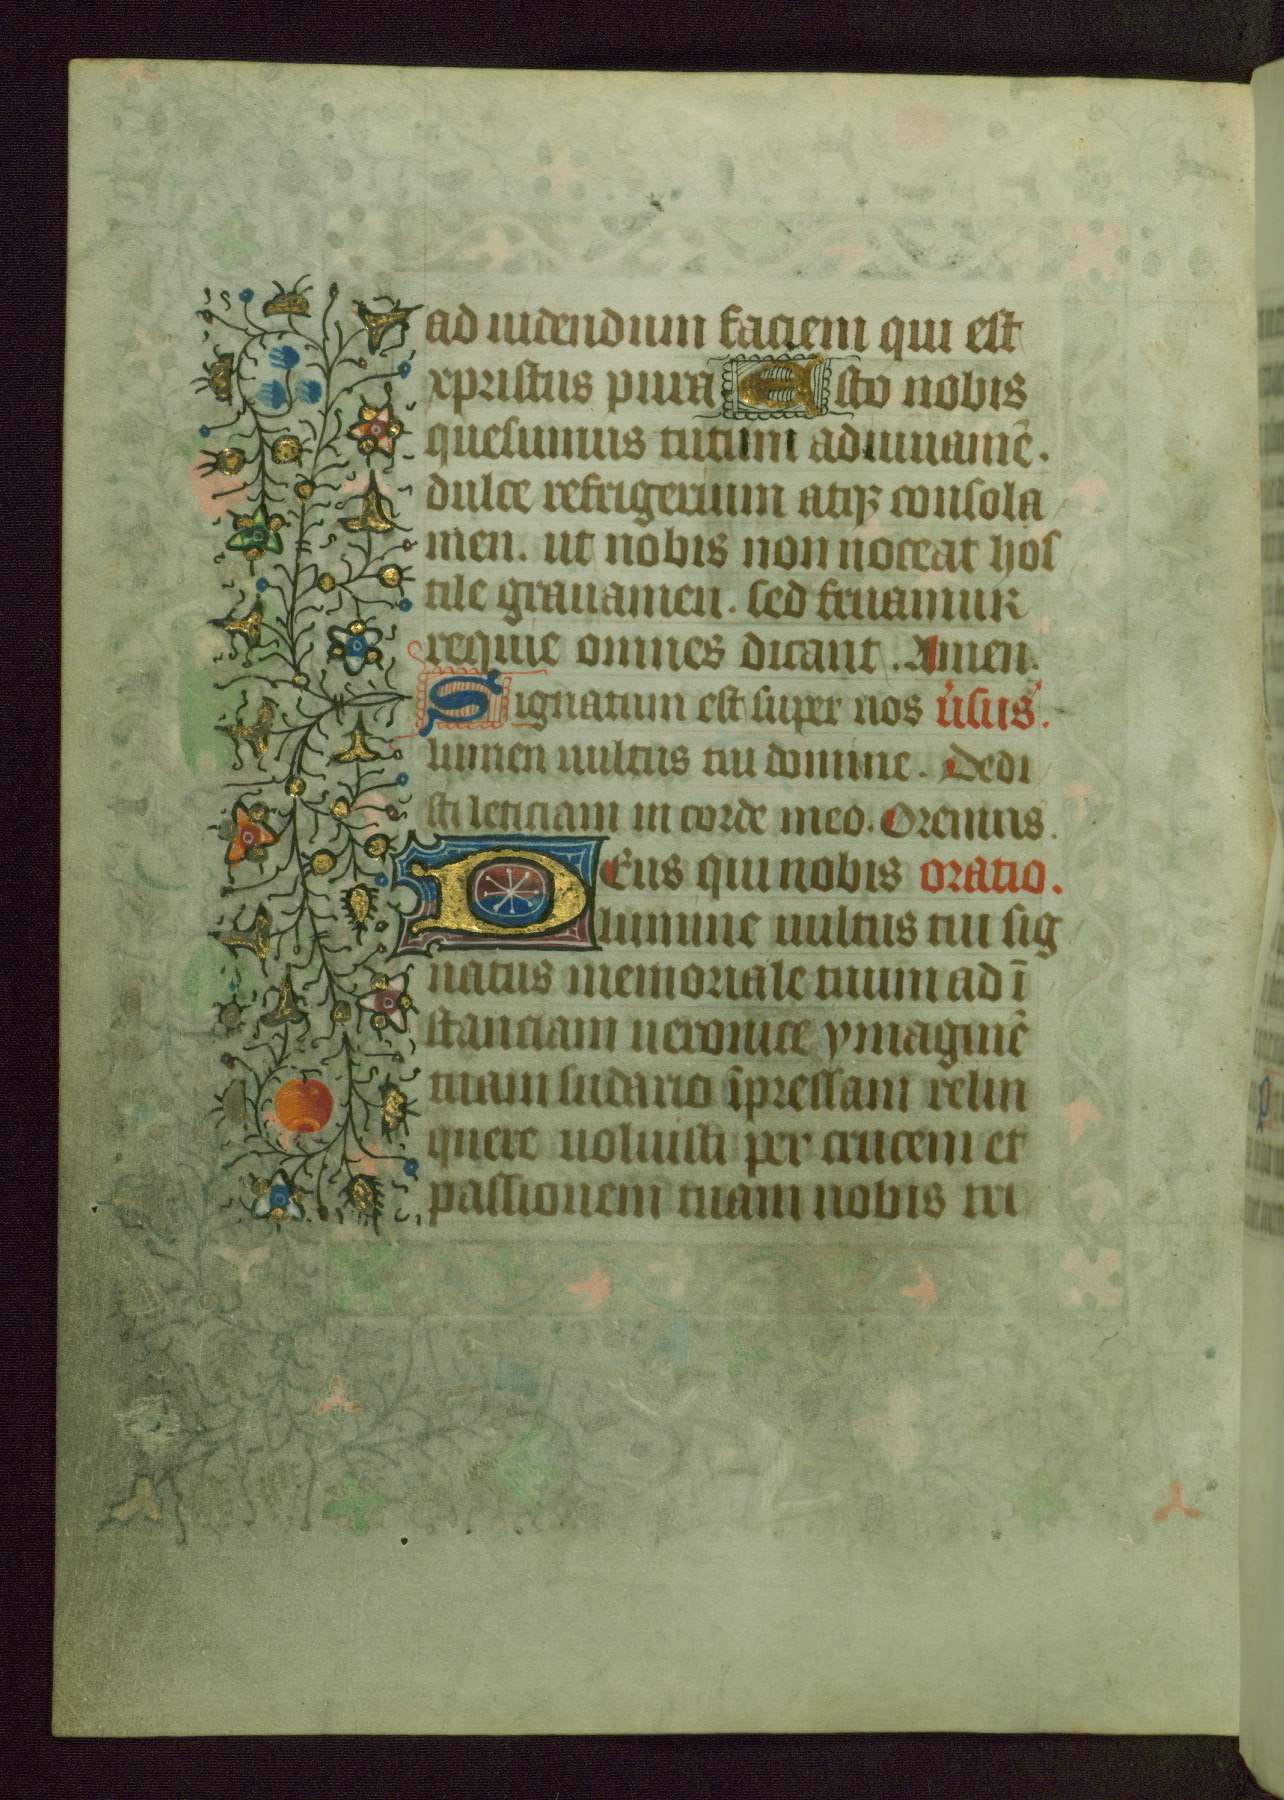 ad uidendum faciem qui est
xpristus pura Esto nobis
quesumus tutum adiuuamē.
dulce refrigerium atqꝫ consola
men. ut nobis non noceat hos
tile grauamen. sed fruamur
requie omnes dicant. Amen.
Signatum est super nos v̉sus.
lumen uultus tui domine. Dedi
sti leticiam in corde meo. Oremus.
DEus qui nobis oratio.
lumine uultus tui sig
natus memoriale tuum ad ī
stanciam ueronice ymaginē
tuam sudario īpressam relin
quere uoluisti per crucem et
passionem tuam nobis tri